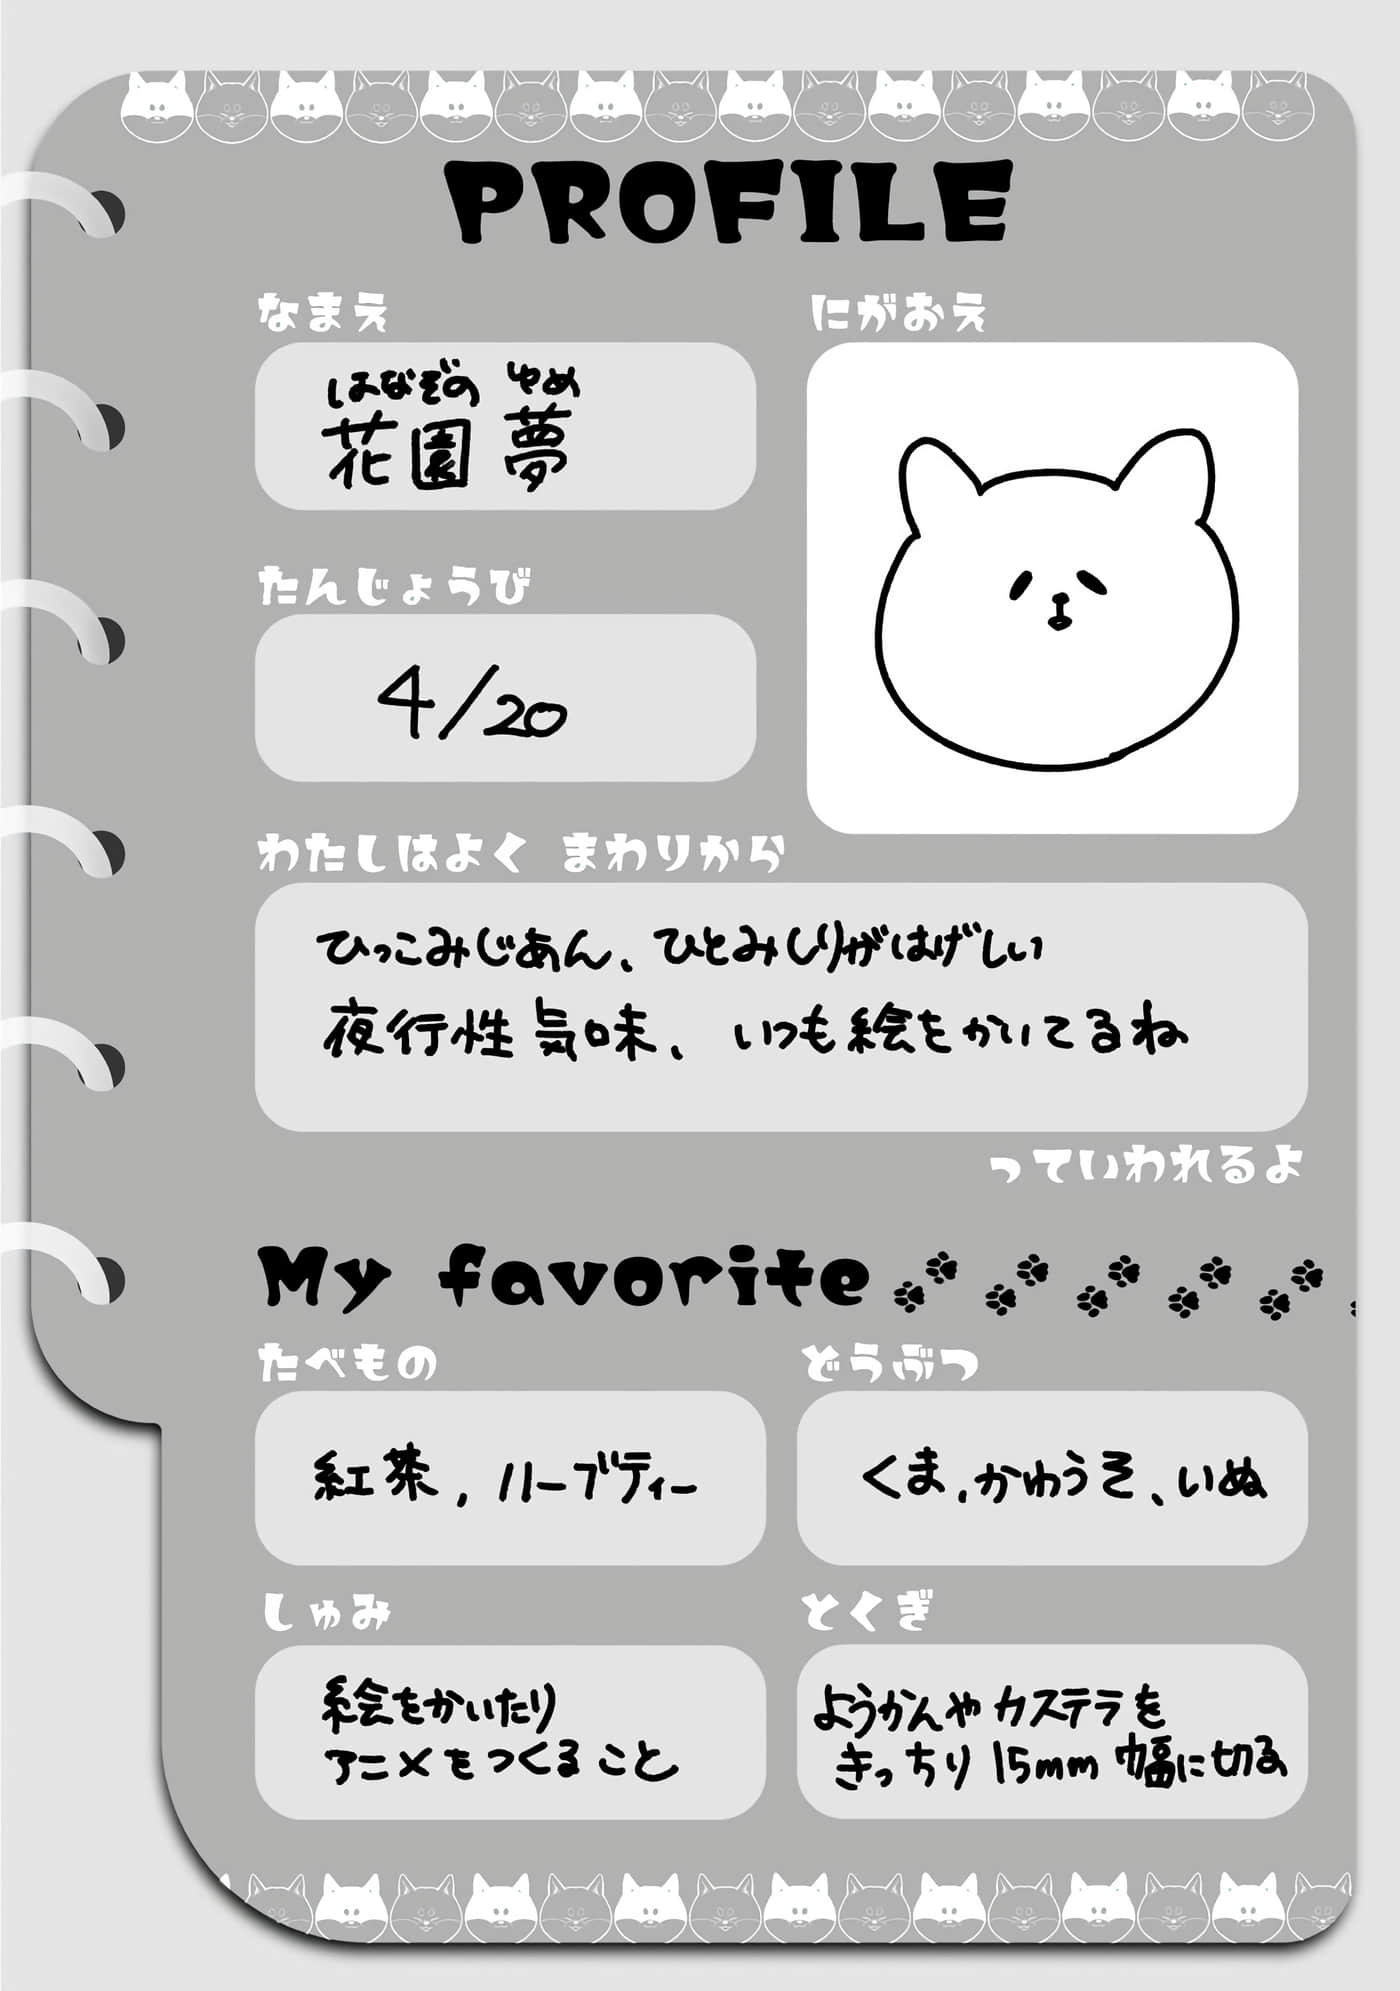 PROFILE
なまえ
にがおえ
はなぞの ゆめ
花園 夢
たんじょうび
4/20
わたしはよく まわりから
ひっこみじあん、ひとみしりがはげしい
夜行性気味、いつも絵をかいてるね
っていわれるよ
My favorite
たべもの
どうぶつ
紅茶, ハーブティー
くま,かわうそ、いぬ
しゅみ
とくぎ
絵をかいたり
アニメをつくること
ようかんやカステラを
きっちり15mm幅に切る